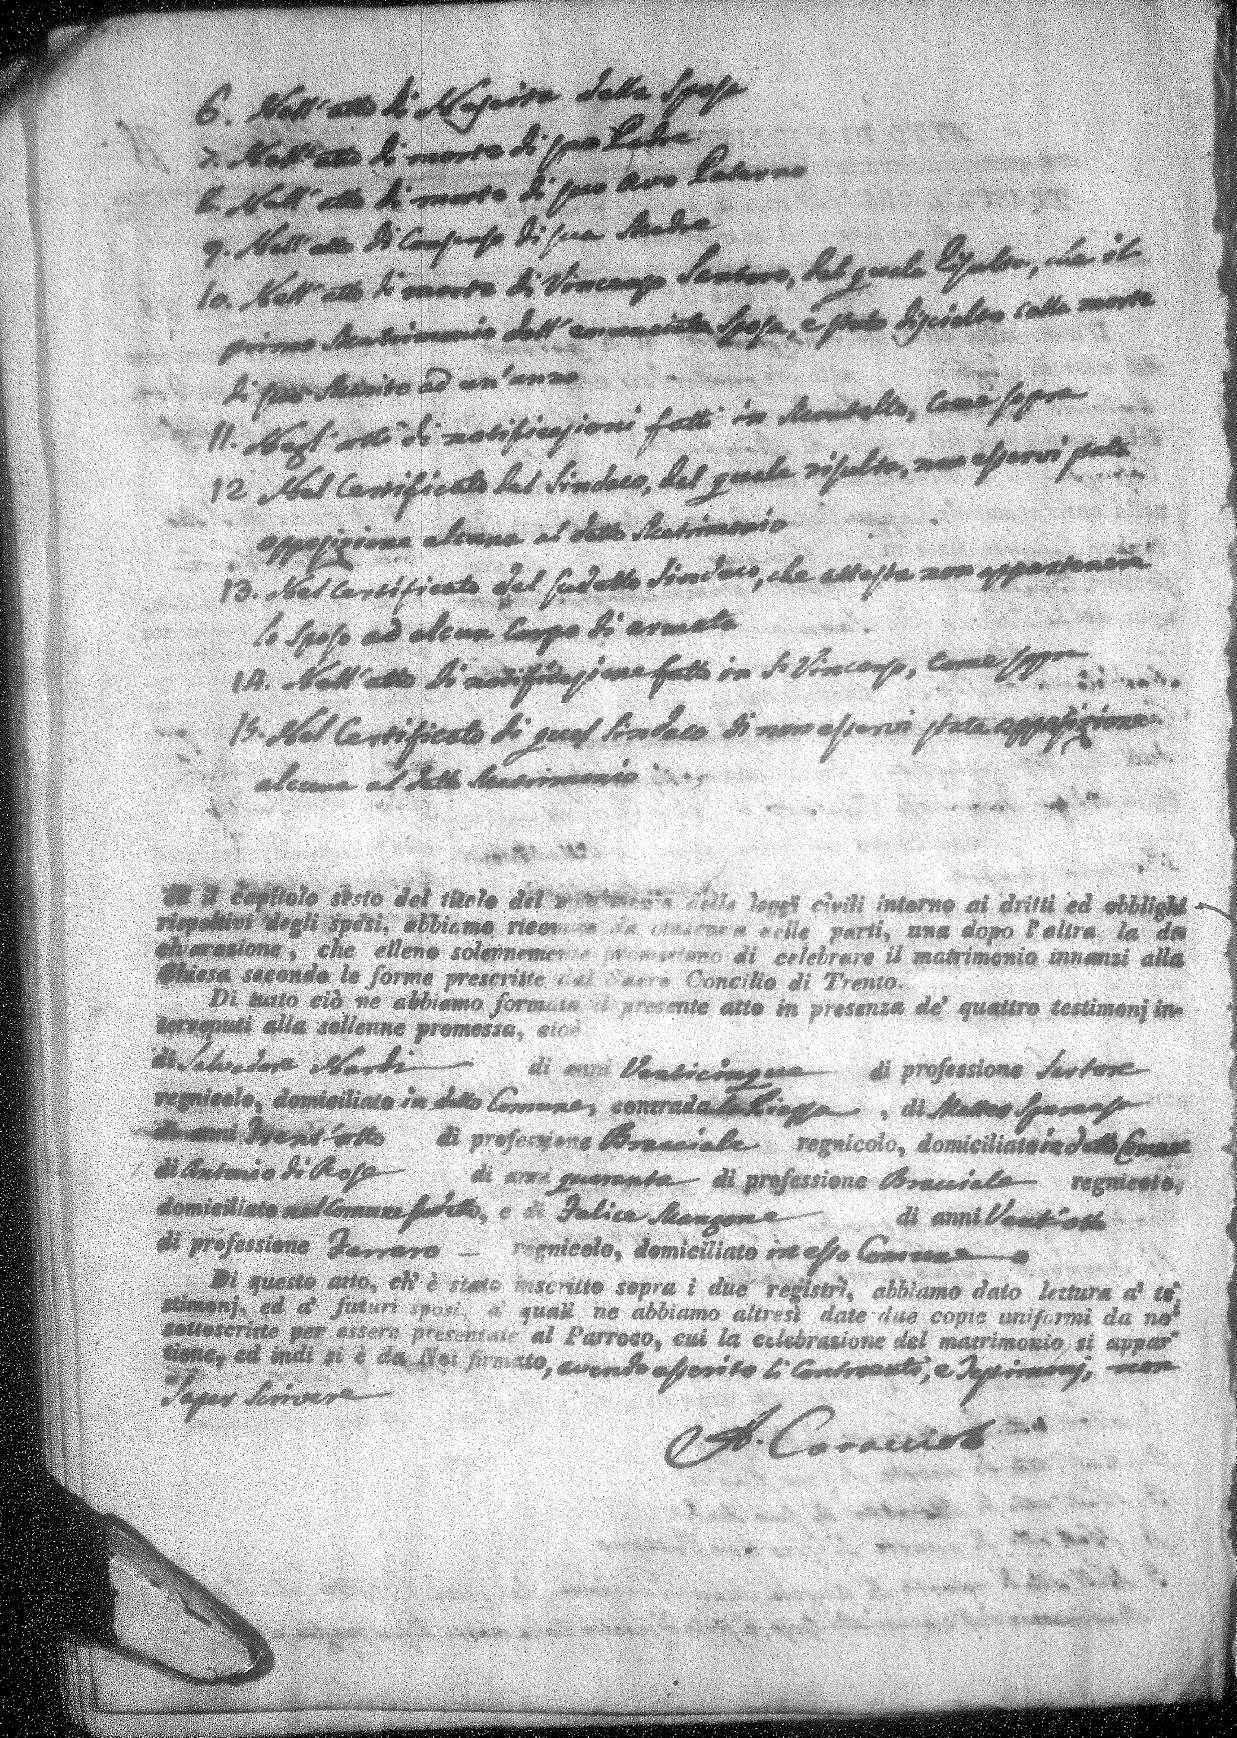 6. Nell'atto di Nascita della Sposa
7. Nell'atto di morte di suo Padre
8. Nell'atto di morte di suo Avo Paterno
9. Nell'atto di Consenso di sua Madre
10. Nell'atto di morte di Vincenzo Santoro, dal quale risulta, che il
primo Matrimonio dell'enunciata Sposa, è stato disciolto colla morte
di suo Marito ad un'anno
11. Negl'atti di notificazioni fatti in Montalto, come sopra
12 Nel Certificato del Sindaco, dal quale risulta, non esservi stata
opposizione alcuna al detto Matrimonio
13. Nel Certificato del sudetto Sindaco, che attesta non appartenere
lo Sposo ad alcun Corpo di armata
14. Nell'atto di notificazione fatto in S. Vincenzo, come sopra
15. Nel Certificato di quel Sindaco di non esservi stata opposizione
alcuna al detto Matrimonio
il capitolo sesto del titolo del matrimonio delle leggi civili intorno ai dritti ed obblighi
rispettivi degli sposi, abbiamo ricevuto da ciascuna delle parti, una dopo l'altra la di
chiarazione, che elleno solennemente promettono di celebrare il matrimonio innanzi alla
Chiesa secondo le forme prescritte dal Sacro Concilio di Trento.
Di tutto ciò ne abbiamo formato il presente atto in presenza de' quattro testimonj in-
tervenuti alla sollenne promessa, cioè
di Salvadore Nardi di anni Venticinque di professione Sartore
regnicolo, domiciliato in detto Comune, contrada la Piazza, di Matteo Speranza
di anni Trent'otto di professione Bracciale regnicolo, domiciliato in detto Comune
di Antonio di Rose di anni quaranta di professione Bracciale regnicolo,
domiciliato nel Comune sudetto, e di Felice Mangone di anni Vent'otto
di professione Ferraro regnicolo, domiciliato in esso Comune
Di questo atto, ch'è stato inscritto sopra i due registri, abbiamo dato lettura a' te-
stimonj, ed a' futuri sposi, a' quali ne abbiamo altresì date due copie uniformi da noi
sottoscritte per essere presentate al Parroco, cui la celebrazione del matrimonio si appar-
tiene, ed indi si è da Noi firmato, avendo asserito li Contraenti, e Testimonj, non
saper scrivere
A. Caracciolo